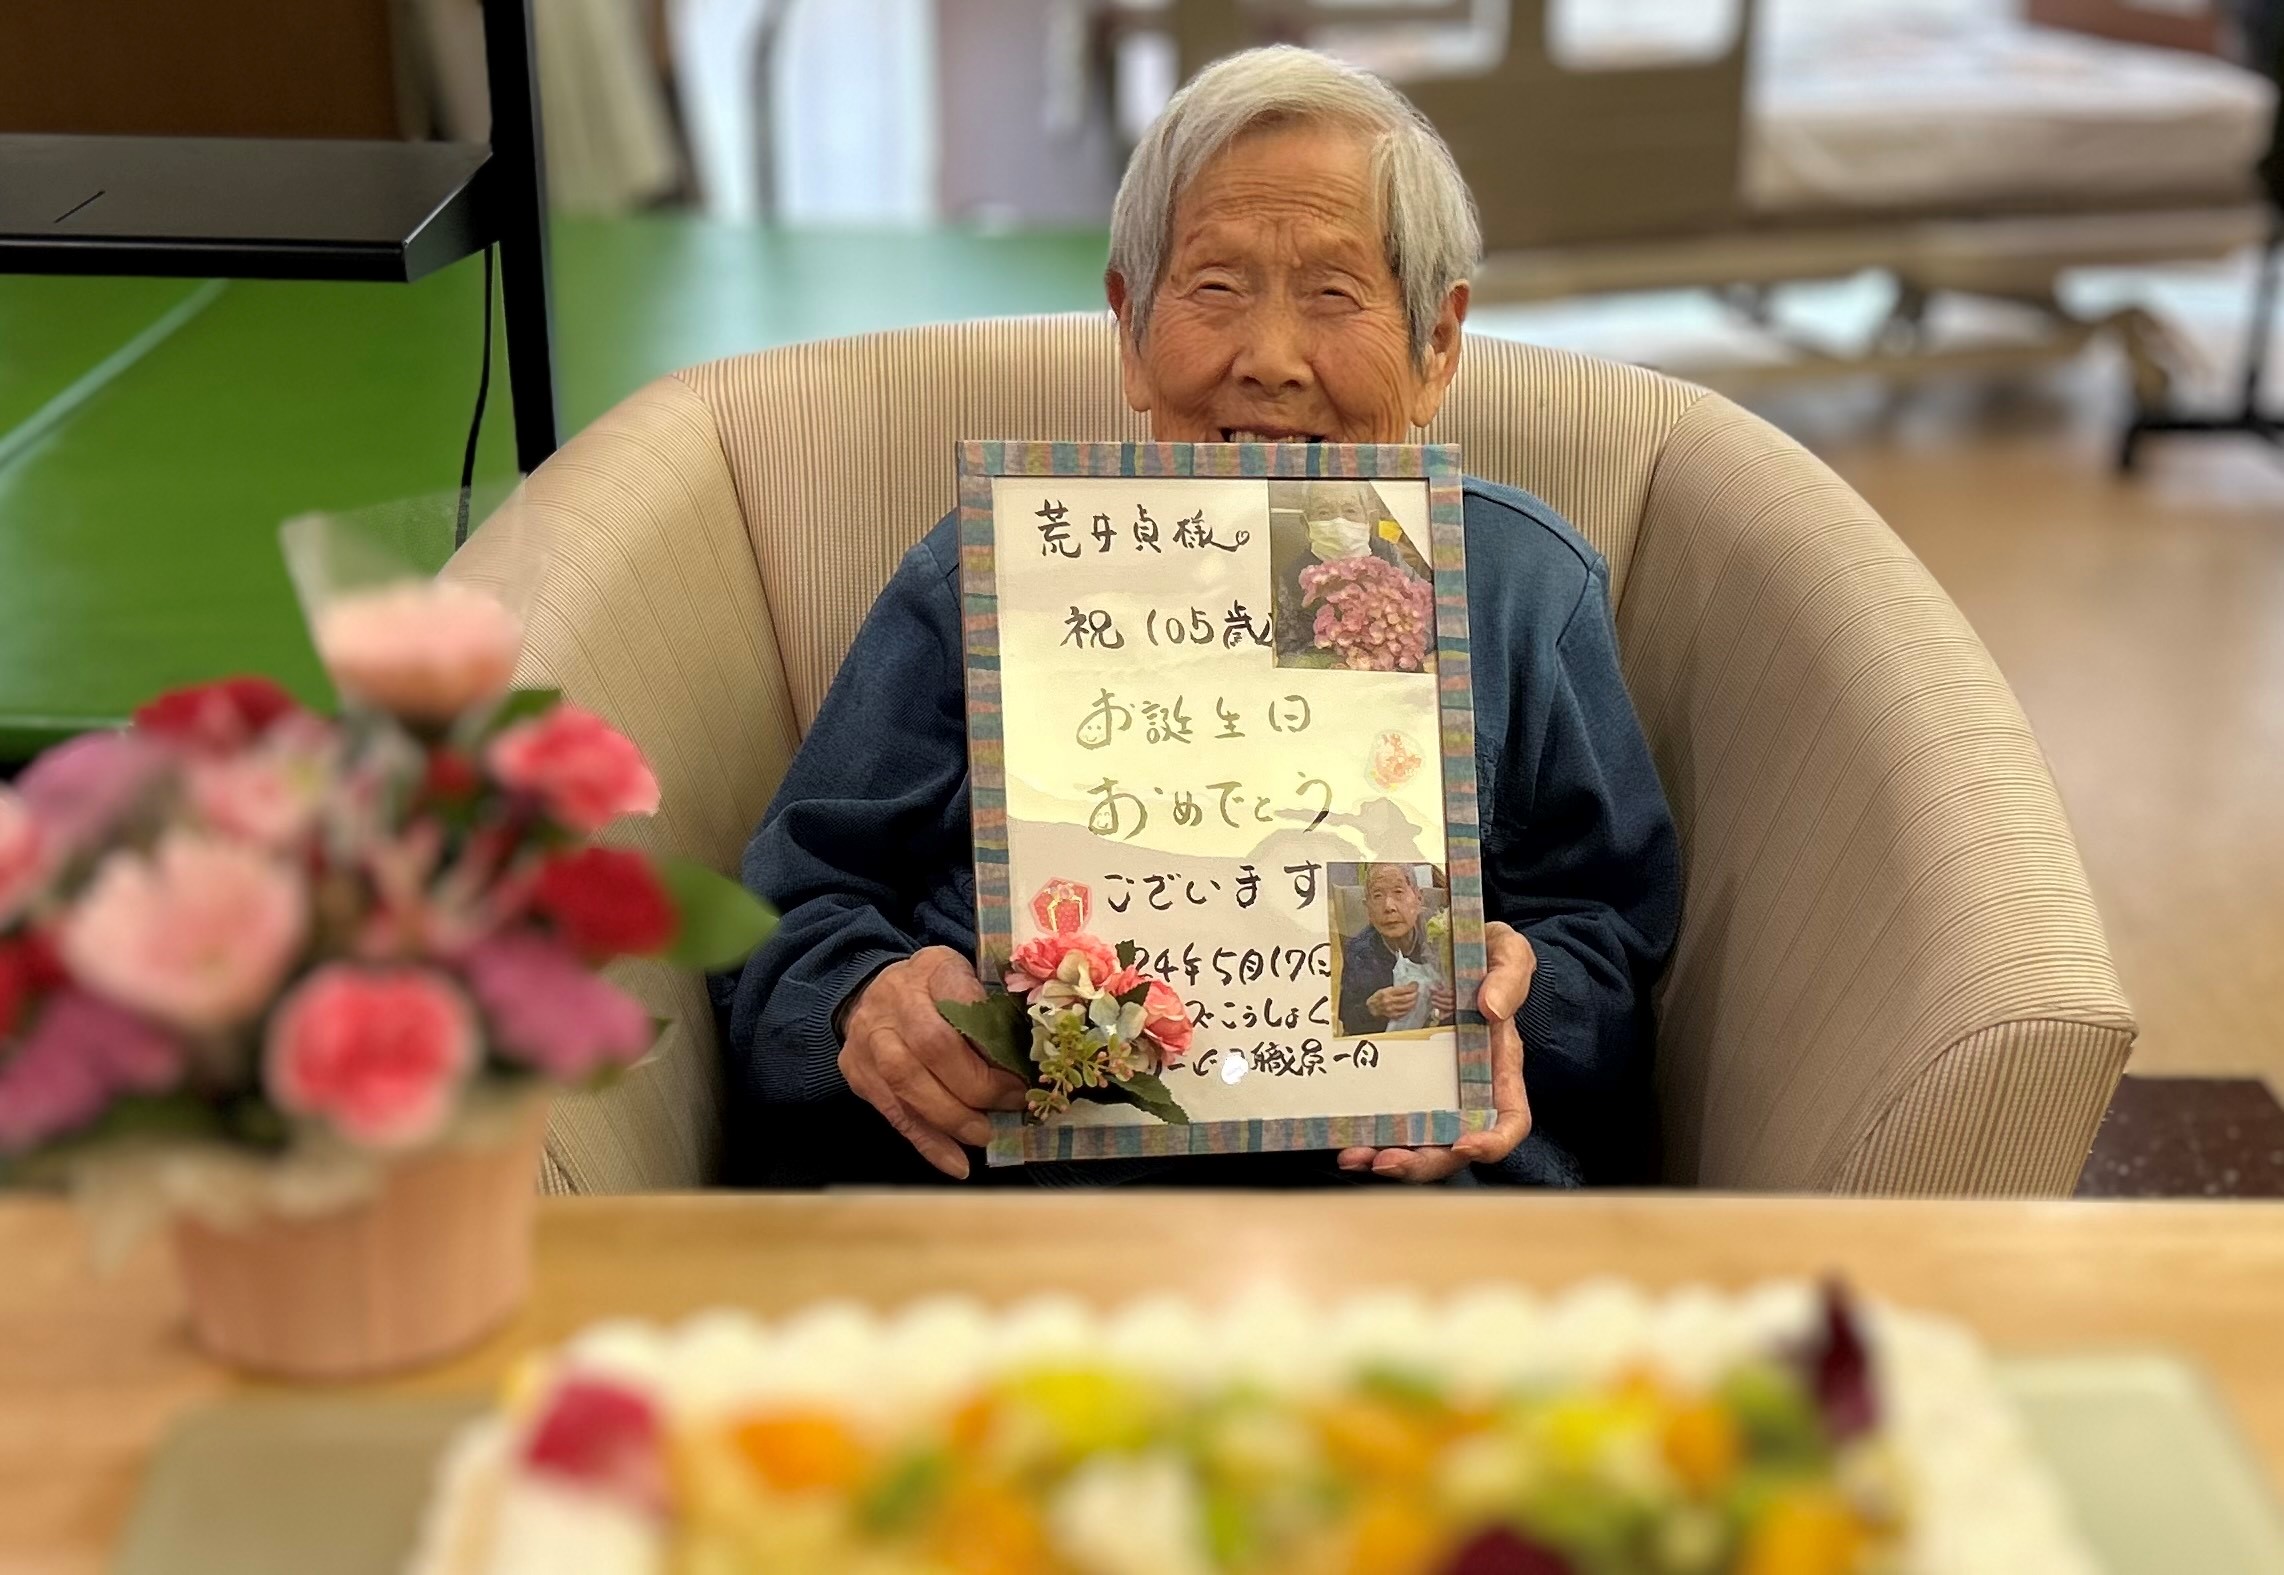 荒井貞様
祝105歳
お誕生日
おめでとう
ございます
24年5月17日
ズこうしょく
職員一同